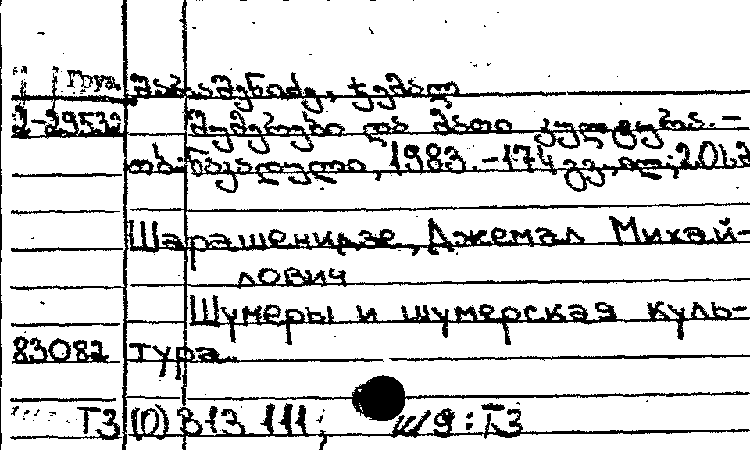 Груз. შარაშენიძე, ჯემალ
2-29532 შუმერები და მათი კულტურა.-
თბ.: ნაკადული, 1983.-174 გვ., ილ.; 20სმ
Шарашенидзе, Джемал Михай-
лович
Шумеры и шумерская куль-
83082 тура.
Т3(0) 313 111; Ш9:Т3